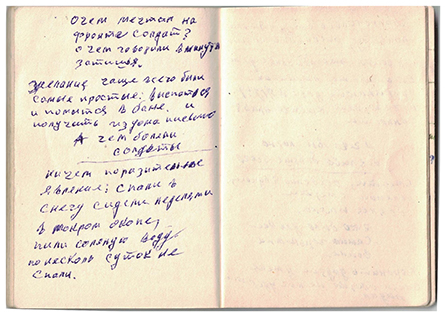 О чем мечтал на
фронте солдат?
О чем говорили в минуты
затишья.
Желания чаще всего были
самые простые: выспаться
и помытся в бане. и
получить из дома письмо
А чем болели
солдаты
ничем поразительное
явление; спали в
снегу сидели неделями
в мокром окопе,
пили соленую воду
по несколь суток не
спали.